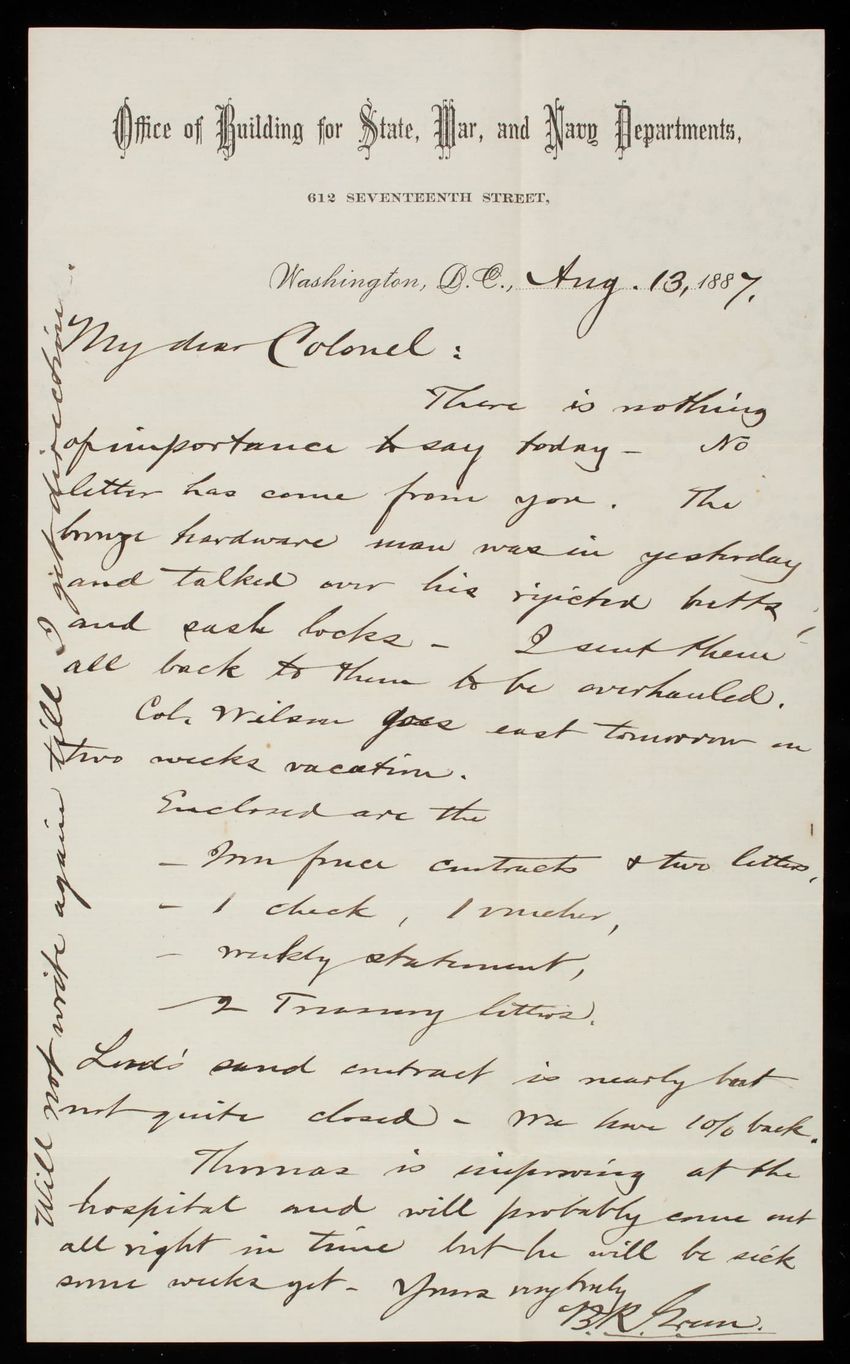 Office of Building for State, War, and Navy Departments,
612 SEVENTEENTH STREET,
Washington, D.C., Aug. 13, 1887.
My dear Colonel:
There is nothing
of importance to say today - No
letter has come from you. The
bronze hardware man was in yesterday
and talked over his rejected butts,
and sash locks - I sent them
all back to them to be overhauled.
Col. Wilson goes east tomorrow on
two weeks vacation.
Enclosed are the
- Iron fence contracts & two letters,
- 1 check, 1 voucher,
- weekly statement,
- 2 Treasury letters.
sand contract is nearly but
not quite closed - We have 10% back.
Thomas is improving at the
hospital and will probably come out
all right in time but he will be sick
some weeks yet - Yours very truly
B.R. Green.
Will not write again till I get direction.